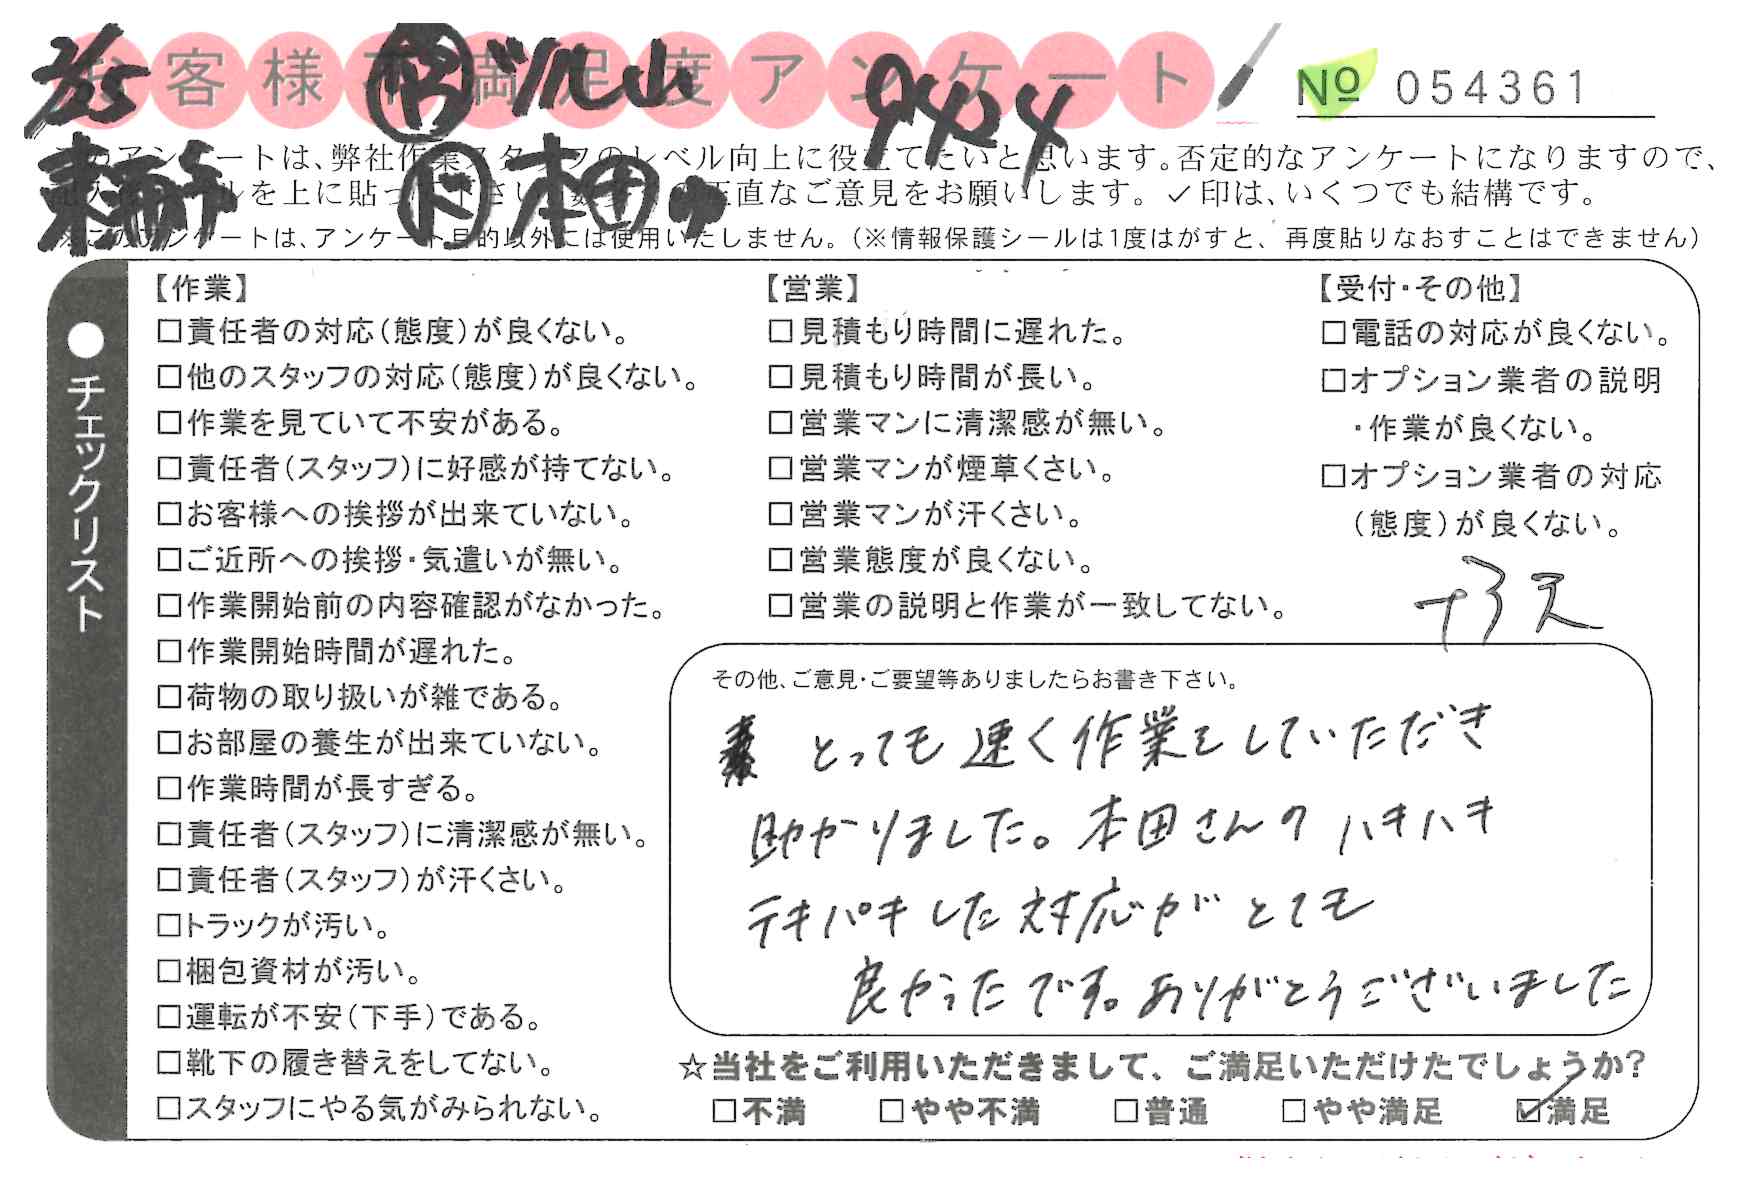 お客様不満足度アンケート
2/25
9424
№ 054361
このアンケートは、弊社作業スタッフのレベル向上に役立てたいと思います。否定的なアンケートになりますので、
シールを上に貼って下さい 正直なご意見をお願いします。✓印は、いくつでも結構です。
本田
※このアンケートは、アンケート目的以外には使用いたしません。(※情報保護シールは1度はがすと、再度貼りなおすことはできません)
●チェックリスト
【作業】
□責任者の対応(態度)が良くない。
□他のスタッフの対応(態度)が良くない。
□作業を見ていて不安がある。
□責任者(スタッフ)に好感が持てない。
□お客様への挨拶が出来ていない。
□ご近所への挨拶・気遣いが無い。
□作業開始前の内容確認がなかった。
□作業開始時間が遅れた。
□荷物の取り扱いが雑である。
□お部屋の養生が出来ていない。
□作業時間が長すぎる。
□責任者(スタッフ)に清潔感が無い。
□責任者(スタッフ)が汗くさい。
□トラックが汚い。
□梱包資材が汚い。
□運転が不安(下手)である。
□靴下の履き替えをしてない。
□スタッフにやる気がみられない。
【営業】
□見積もり時間に遅れた。
□見積もり時間が長い。
□営業マンに清潔感が無い。
□営業マンが煙草くさい。
□営業マンが汗くさい。
□営業態度が良くない。
□営業の説明と作業が一致してない。
【受付・その他】
□電話の対応が良くない。
□オプション業者の説明
・作業が良くない。
□オプション業者の対応
(態度)が良くない。
その他、ご意見・ご要望等ありましたらお書き下さい。
とっても速く作業をしていただき
助かりました。本田さんの ハキハキ
テキパキした対応が とても
良かったです。ありがとうございました
☆当社をご利用いただきまして、ご満足いただけたでしょうか?
□不満 □やや不満 □普通 □やや満足 ☑満足